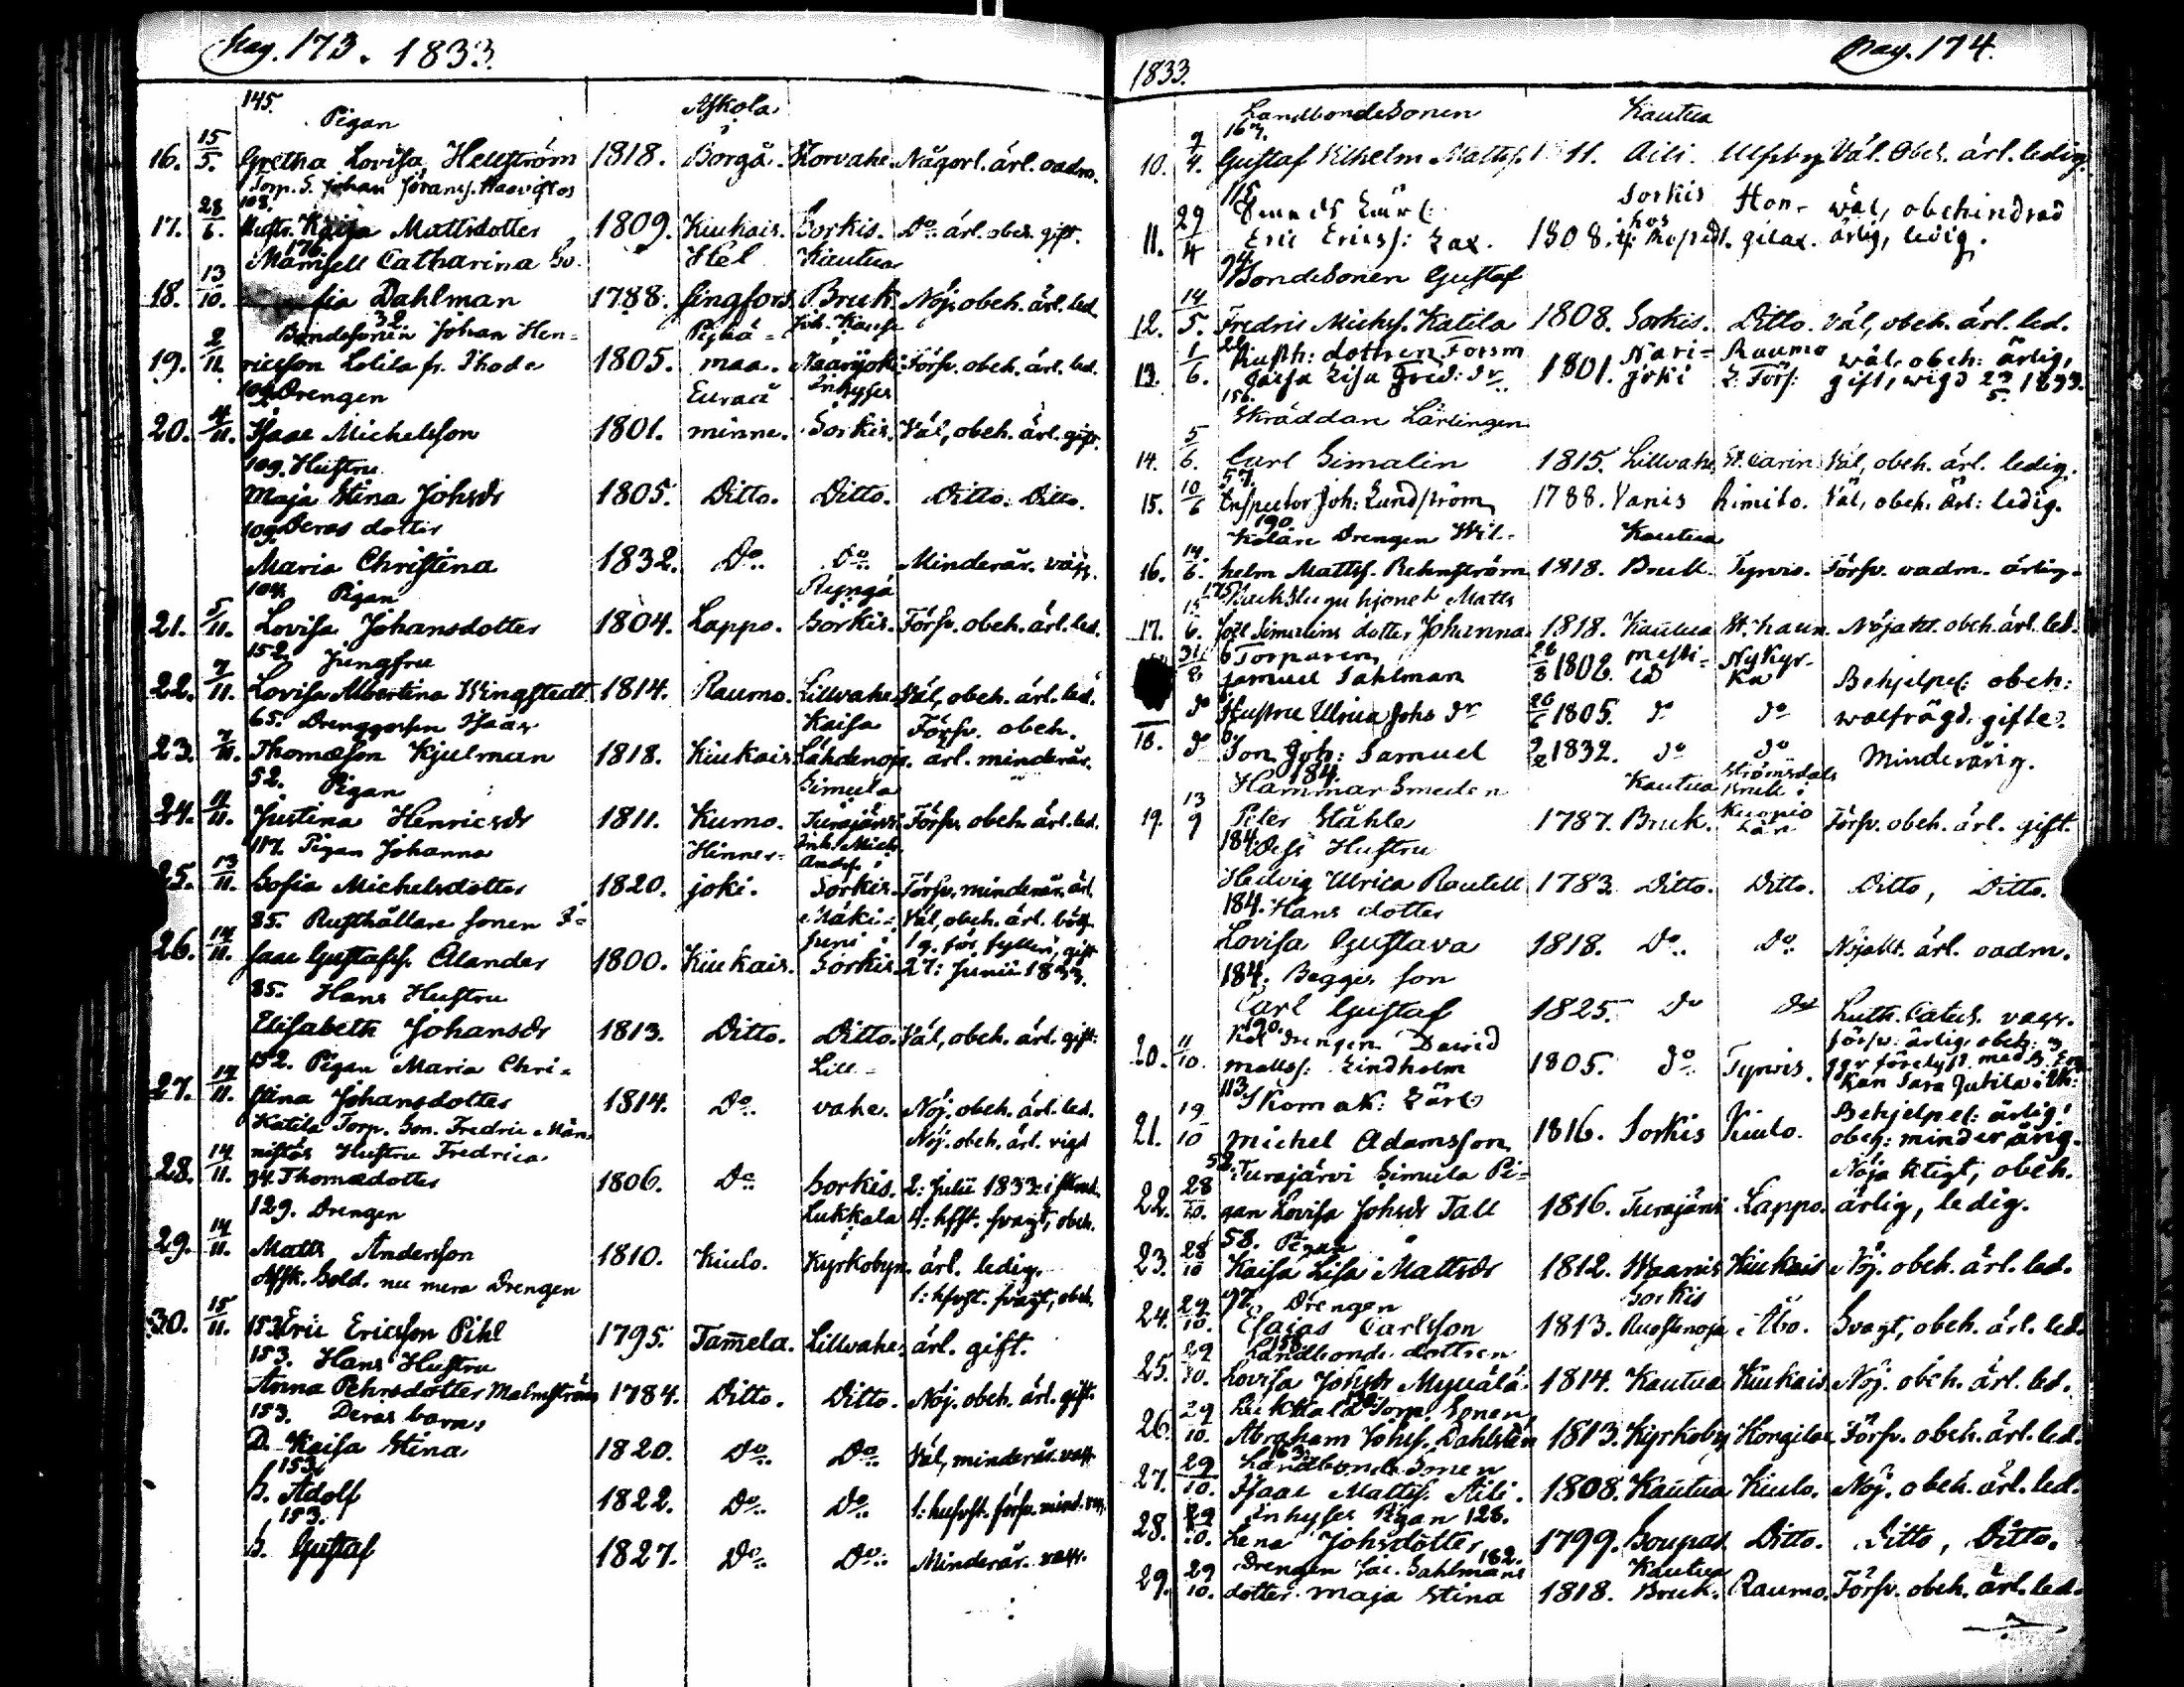 pag. 173. 1833.
145. Pigan Askola
16. 15/5. Gretha Lovisa Hellström 1818. Borgå. Korvahe. Någorl. ärl. oadm.
Torp. S. Johan
108.
17. 28/6. Hustr. Kaisa Mattsdotter 1809. Kiukais. Sorkis. Do ärl. obeh. gift.
176. Mamsell Catharina So- Hel Kautua
18. 13/10. fia Dahlman 1788. singfors. Bruk. Nöj. obeh. ärl. led.
32. Bondesonen Johan Hen-
19. 2/11. ricsson Lolila fr. Thode 1805. maa. Förſv. obeh. ärl. led.
109. Drengen Euraå Inhyses
20. 4/11. Isaac Michelsson 1801. minne. Sorkis. Väl, obeh. ärl. gift.
109. Hustru
Maja Stina Johsdr 1805. Ditto. Ditto. Ditto. Ditto.
109. Deras dotter
Maria Christina 1832. Do Do Minderår. vacc.
104. Pigan
21. 5/11. Lovisa Johansdotter 1804. Lappo. Sorkis. Förſv. obeh. ärl. led.
152. Jungfru
22. 7/11. Lovisa Albertina Wingstedt 1814. Raumo. Lillvahe. Väl, obeh. ärl. led.
65. Drenggossen Isaac Kaisa Förſv. obeh.
23. 7/11. Thomasson Kjulman 1818. Kiukais. Lähdenoja. ärl. minderår.
52. Pigan Simula
24. 11/11. Justina Henricsdr 1811. Kumo. Turajärvi. Förſv. obeh. ärl. led.
117. Pigan Johanna Hinner- Inh. Mich. Andſ. i
25. 13/11. Sofia Michelsdotter 1820. joki. Sorkis. Förſv. minderår. ärl.
85. Rusthållare sonen I- Väl, obeh. ärl. böt.
26. 14/11. saac Gustafss. Alander 1800. Kiukais. Sorkis. 27: Junii 1833.
1 g. för fylleri, gift
85. Hans Hustru
Elisabeth Johansdr 1813. Ditto. Ditto. Väl, obeh. ärl. gift.
152. Pigan Maria Chri- Lill-
27. 14/11. stina Johansdotter 1814. Do vahe. Nöj. obeh. ärl. led.
Katila Torp. Son. Fredric Män- Nöj. obeh. ärl. vigd
28. 14/11. nistös Hustru Fredrica
94. Thomædotter 1806. Do Sorkis. 2: Julii 1833
129. Drengen Lukkala svagt, obeh.
29. 14/11. Matts Andersson 1810. Kiulo. Kyrkobyn. ärl. ledig.
Afsk. Sold. nu mera Drengen svagt, obeh.
30. 15/11. 153. Eric Ericsson Pihl 1795. Tam̄ela. Lillvahe. ärl. gift.
153. Hans Hustru
Anna Pehrsdotter Malmström 1784. Ditto. Ditto. Nöj. obeh. ärl. gift.
153. Deras barn,
D. Kaisa Stina 1820. Do Do Väl, minderår. vacc.
153.
S. Adolf 1822. Do Do
153.
S. Gustaf 1827. Do Do Minderår. vacc.
1833. pag. 174.
Landbondesonen Kautua
163.
10. 9/4. Gustaf Wilhelm Mattss. Aili. Väl. Obeh. ärl. ledig.
115. Sorkis Hon- wäl, obehindrad
11. 29/4 Eric Ericss: Lax. 1808. gilax. ärlig, ledig.
94. Bondesonen Gustaf
12. 14/5. Fredric Michss. Katila 1808. Sorkis. Ditto. Väl, obeh. ärl. led.
Rusth: dottren Forsm Nari- Raumo wäl. obeh: ärlig,
13. 1/6. Caisa Lisa Fred: dr 1801. joki L. Förſ: gift, wigd 23/5 1833.
156.
Skräddare Lärlingen
14. 5/6. Carl Simalin 1815. Lillvahe. St. Carin. Väl, obeh. ärl. ledig.
57.
15. 10/6 Inspector Joh: Lundström 1788. Vanis Kimito. Väl, obeh. ärl: ledig.
190.
Kolare Drengen Wil- Kautua
16. 14/6. helm Mattss. Rehnström 1818. Bruk. Tyrvis. Förſv. oadm. ärlig.
175. Matts
17. 15/6. Joel Simalins dotter Johanna 1818. Kautua Nöjakt. obeh. ärl. led.
31/8 Torparen 26/8 1802. Nykyr-
Samuel Sahlman ka Behjelpel: obeh:
do Hustru Ulrica Johs dr 26/6 1805. do do wälfrägd. gifte.
18. do Son Joh: Samuel 1832. do do Minderårig.
184.
Hammar Smeden Kautua Strömsdals Bruk i
19. 13/9 Peter Ståhle 1787. Bruk. Kuopio Län Förſv. obeh. ärl. gift.
184. Dess Hustru
Hedvig Ulrica Rautell 1783. Ditto. Ditto. Ditto, Ditto.
184. Hans dotter
Lovisa Gustava 1818. Do Do Nöjakt. ärl. oadm.
184. Bagges son
Carl Gustaf 1825. Do Do Luth. Catech. vacc.
190.
Kol drengen David förſv: ärlig, obeh: 3
20. 11/10. Mattss: Lindholm 1805. do Tyrvis.
113. Skomak: Lärl Behjelpel: ärlig,
21. 19/10 Michel Adamsson 1816. Sorkis Kiulo. obeh: minderårig.
52. Turajärvi Simula Pi- Nöjaktigt, obeh.
22. 28/10. gan Lovisa Johsdr Tall 1816. Turajärvi Lappo. ärlig, ledig.
58. Pigan
23. 28/10 Kaisa Lisa Mattsdr 1812. Waanis Kiukais Nöj. obeh. ärl. led.
97. Drengen Sorkis
24. 29/10. Esaias Carlsson 1813. Ruostenoja Åbo. Svagt, obeh. ärl. led.
Landbonde dottren
25. 29/10. Lovisa Johsdr Myllälä 1814. Kautua Kiukais. Nöj. obeh. ärl. led.
Lukkala Torp. Sonen
26. 29/10. Abraham Johss. Dahlsten 1813. Kyrkoby Hongilax. Förſv. obeh. ärl. led.
163.
Landbonde Sonen
27. 29/10. Isaac Mattss. Aili. 1808. Kautua Kiulo. Nöj. obeh. ärl. led.
Inhyses Pigan 128.
28. 29/10. Lena Johsdotter 1799. Soupas Ditto. Ditto, Ditto.
Drengen Jac. Sahlmans 182. Kautua
29. 29/10. dotter Maja Stina 1818. Bruk. Raumo. Förſv. obeh. ärl. led.